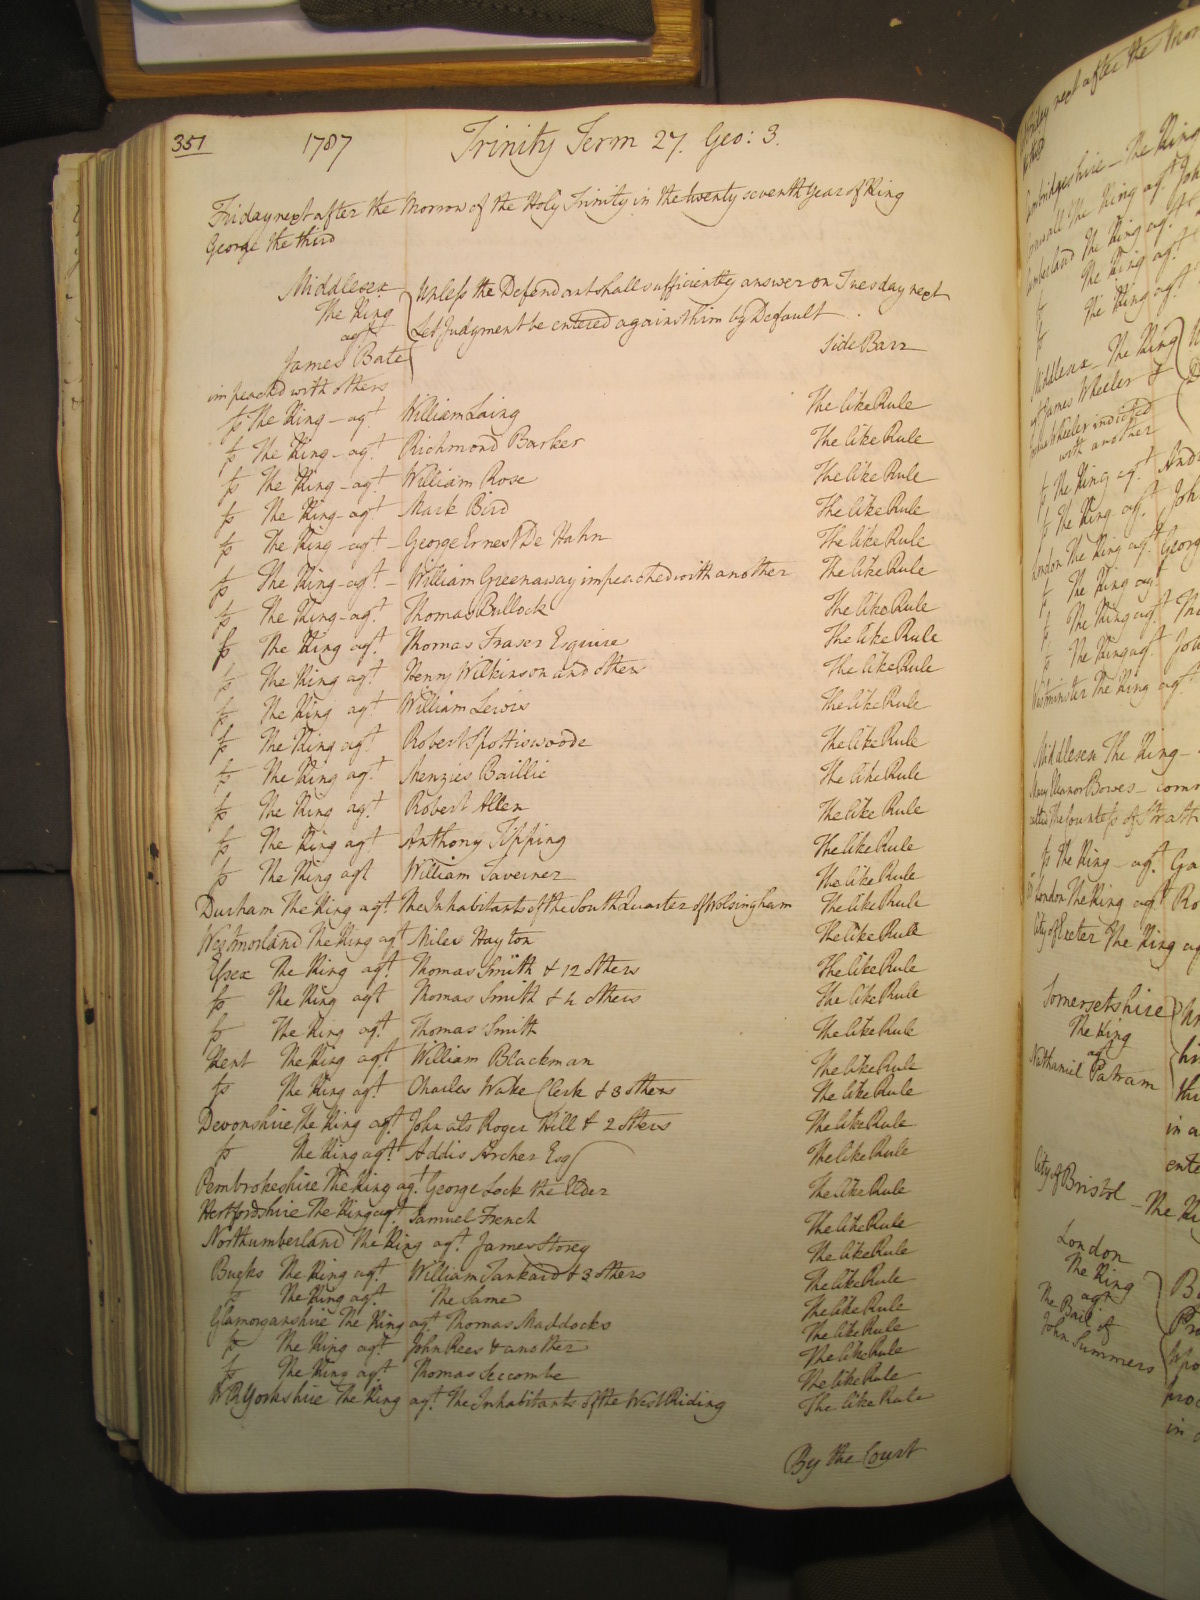 351 1787 Trinity Term 27. Geo: 3.
Friday next after the Morrow of the Holy Trinity in the twenty seventh Year of King
George the third
Middlesex
The King
agt
James Bate
impeached with others
Unless the Defendant shall sufficiently answer on Tuesday next
Let Judgment be entered against him by Default
Side Barr
fs The King - agt William Laing The like Rule
fs The King - agt Richmond Barker The like Rule
fs The King - agt William Rose The like Rule
fs The King - agt Mark Bird The like Rule
fs The King - agt - George Ernest De Hahn The like Rule
fs The King - agt - William Greenaway impeached with another The like Rule
fs The King - agt Thomas Bullock The like Rule
fs The King agt Thomas Fraser Esquire The like Rule
fs The King agt Henry Wilkinson and others The like Rule
fs The King agt William Lewis The like Rule
fs The King agt Robert Spottiswoode The like Rule
fs The King agt Menzies Baillie The like Rule
fs The King agt Robert Allen The like Rule
fs The King agt Anthony Tipping The like Rule
fs The King agt William Taverner The like Rule
Durham The King agt The Inhabitants of the South Quarter of Wolsingham The like Rule
Westmorland The King agt Miles Hayton The like Rule
Essex The King agt Thomas Smith & 12 others The like Rule
fs The King agt Thomas Smith & 4 others The like Rule
fs The King agt Thomas Smith The like Rule
Kent The King agt William Blackman The like Rule
fs The King agt Charles Wake Clerk & 3 others The like Rule
Devonshire The King agt John als Roger Hill & 2 others The like Rule
fs The King agt Addis Archer Esq The like Rule
Pembrokeshire The King agt George Lock the Elder The like Rule
Hertfordshire The King agt Samuel French The like Rule
Northumberland The King agt James Storey The like Rule
Bucks The King agt William Tankard & 3 others The like Rule
fs The King agt The Same The like Rule
Glamorganshire The King agt Thomas Maddocks The like Rule
fs The King agt John Rees & another The like Rule
fs The King agt Thomas Seccombe The like Rule
W R Yorkshire The King agt The Inhabitants of the West Riding The like Rule
By the Court
Cambridgeshire - The King
Cornwall The King agt
Cumberland The King agt
The King agt
The King agt
Middlesex - The King
agt James Wheeler &
Wheeler indicted
with another
fs The King agt
fs The King agt
London The King agt
fs The King agt
fs The King agt
fs The King agt
Westminster The King agt
Middlesex The King -
Mary Eleanor Bowes - comm
called The Countess of Strath
fs The King - agt
London The King agt
City of Exeter The King ag
Somersetshire
The King
agt
Nathaniel Patram
City of Bristol - The Ki
London
The King
agt
The Bail of
John Summers